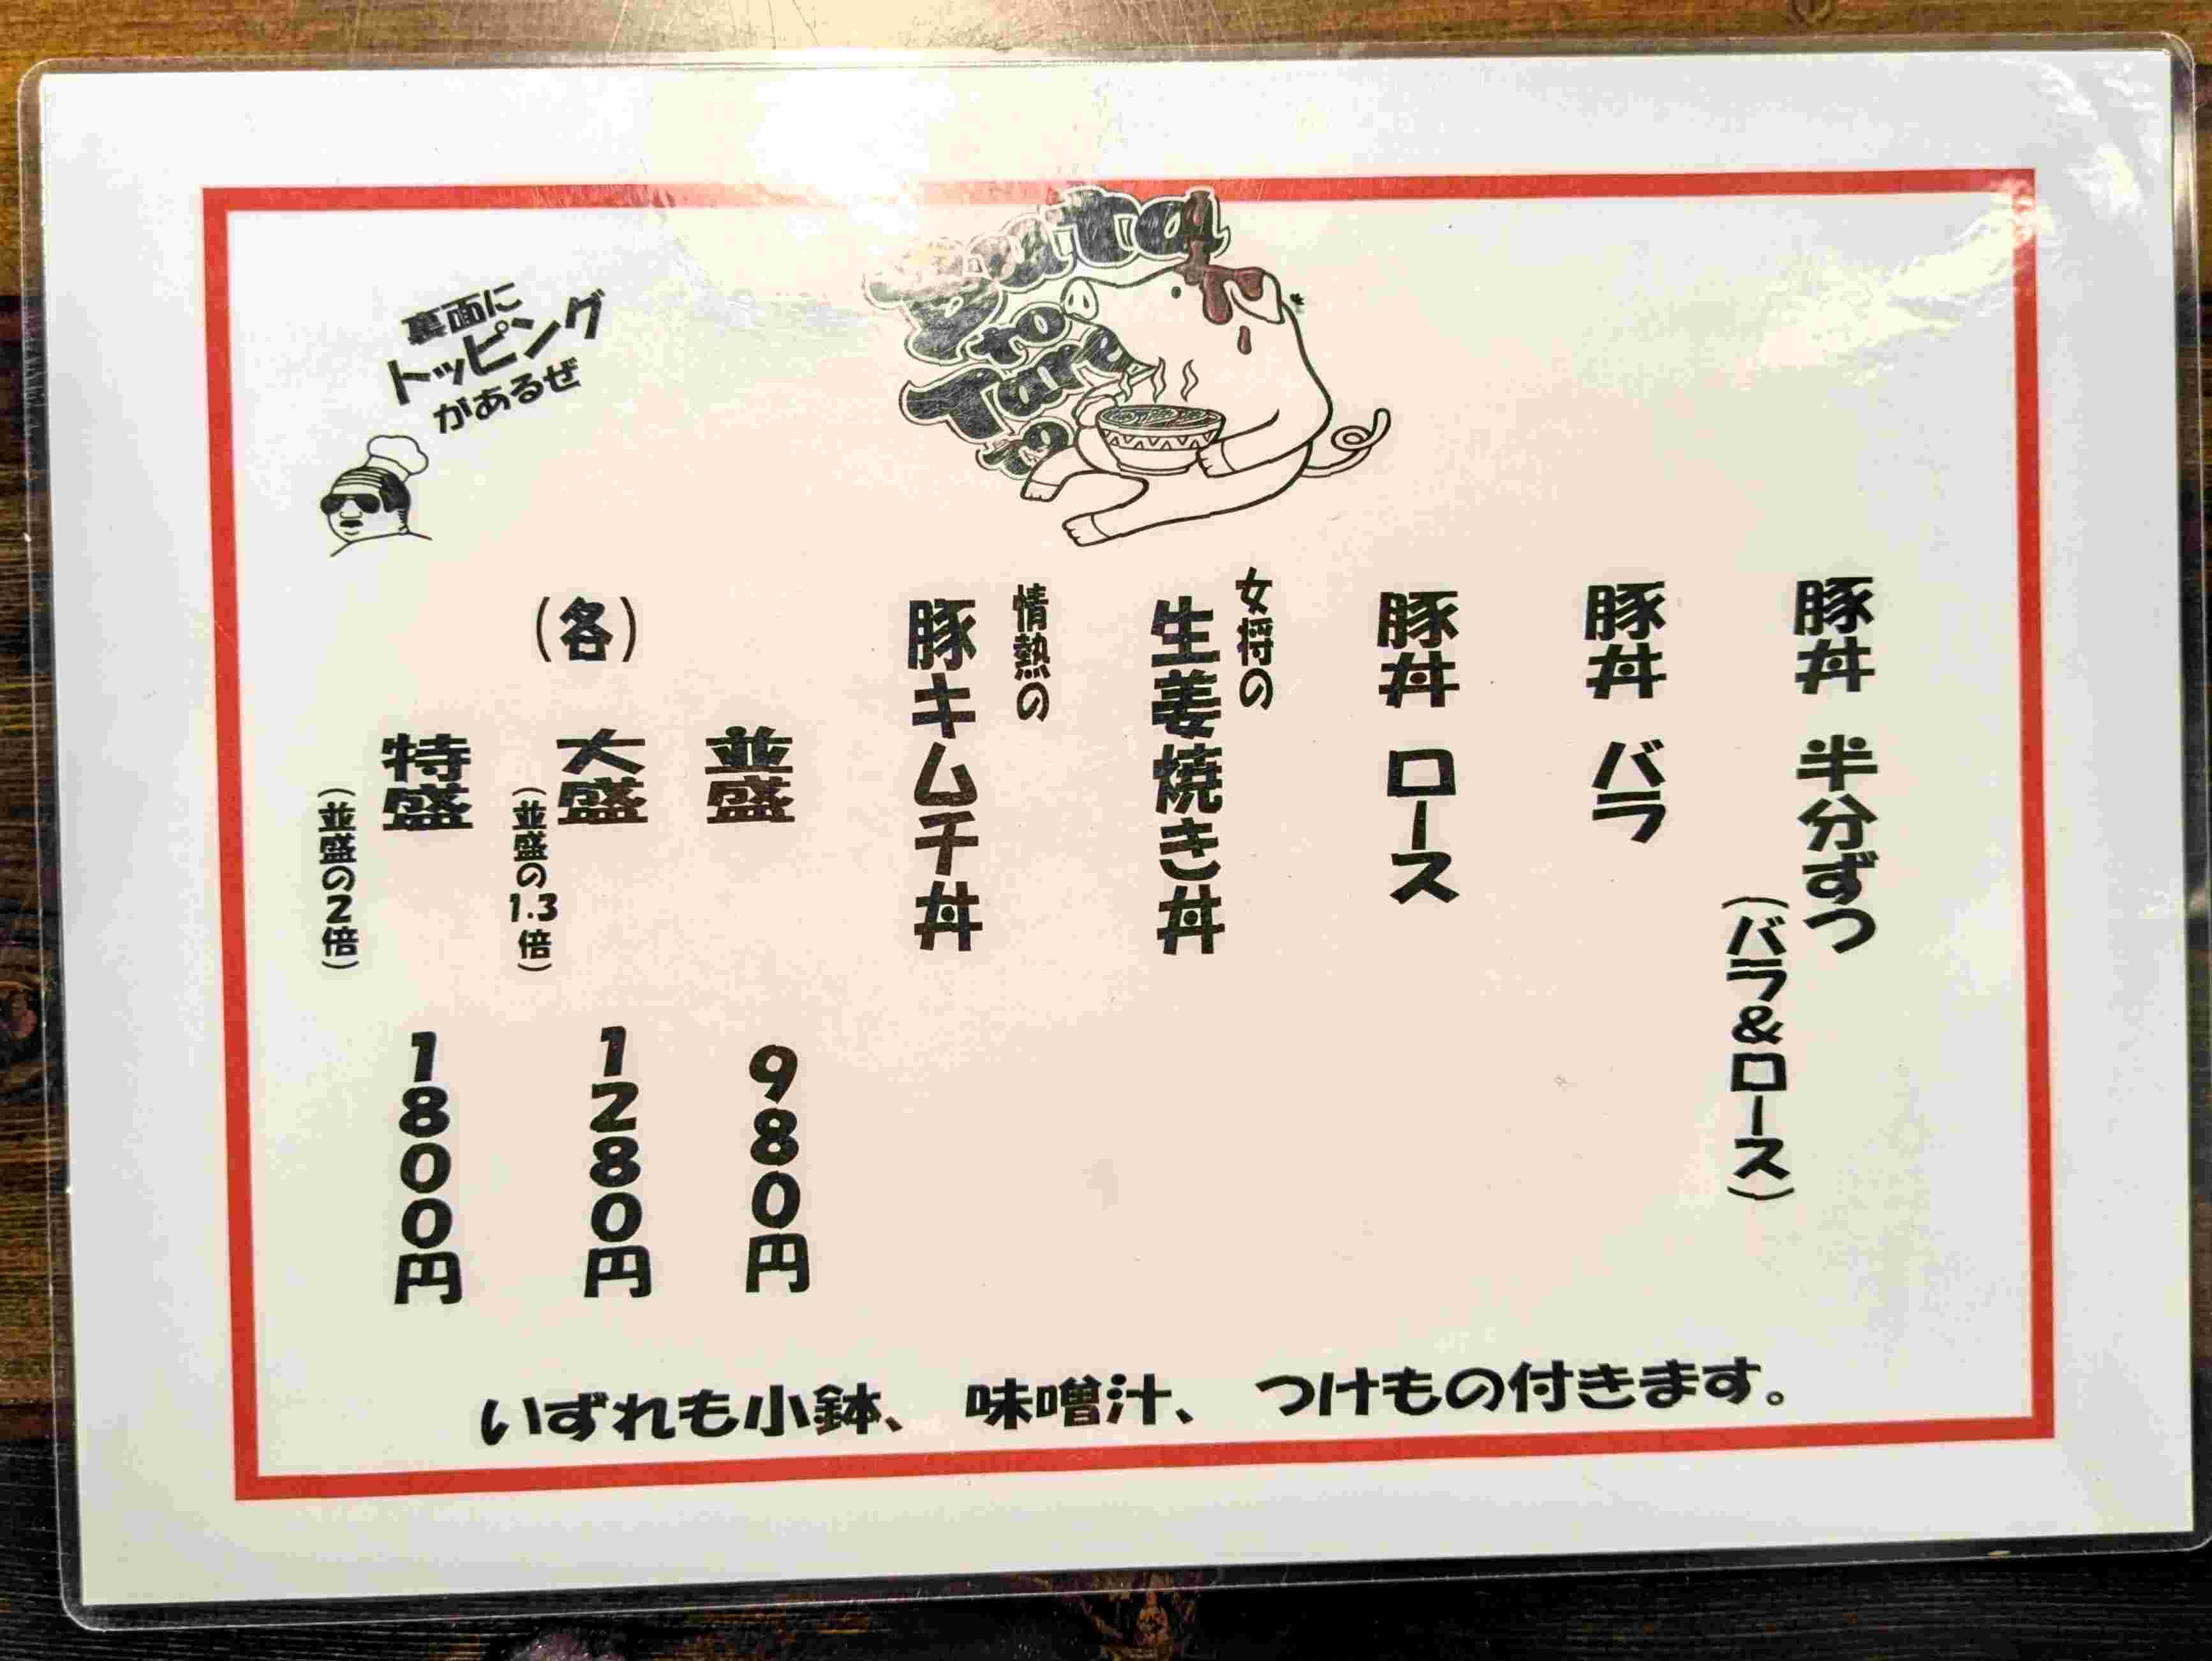 Buta
to
Tare
to
豚丼 半分ずつ
(バラ&ロース)
豚丼 バラ
豚丼 ロース
女将の
生姜焼き丼
情熱の
豚キムチ丼
(各)
並盛 980円
大盛 1280円
(並盛の1.3倍)
特盛 1800円
(並盛の2倍)
裏面に
トッピング
があるぜ
いずれも小鉢、 味噌汁、 つけもの付きます。